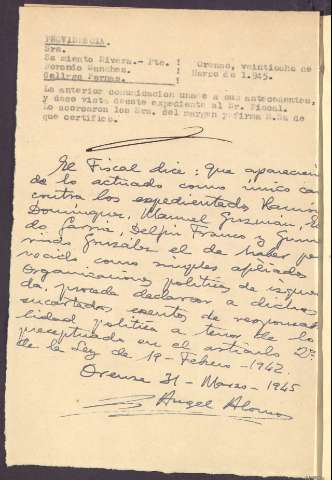 PROVIDENCIA.
Sres.
Sarmiento Rivera.- Pte. ! Orense, veintiocho de
Sanchez. ! Marzo de 1.945.
Gallego Pernas. !
La anterior comunicacion unase a sus antecedentes,
y dese vista deeste expediente al Sr. Fiscal.
Lo acordaron los Sres. del margen y firma S.Sa de
que certifico.
El Fiscal dice: que apareciendo
de lo actuado como único cargo
contra los expedientados Ramón
Dominguez, Manuel Guzmán,
do García, Delfin Franco y
González el de haber per
necido como simples afiliados a
Organizaciones políticas de izquier
da, procede declarar a dichos
encartados exentos de responsabi
lidad política a tenor de lo
preceptuado en el artículo 2º
de la Ley de 19-Febrero-1942.
Orense 31-Marzo-1945
Angel Alonso